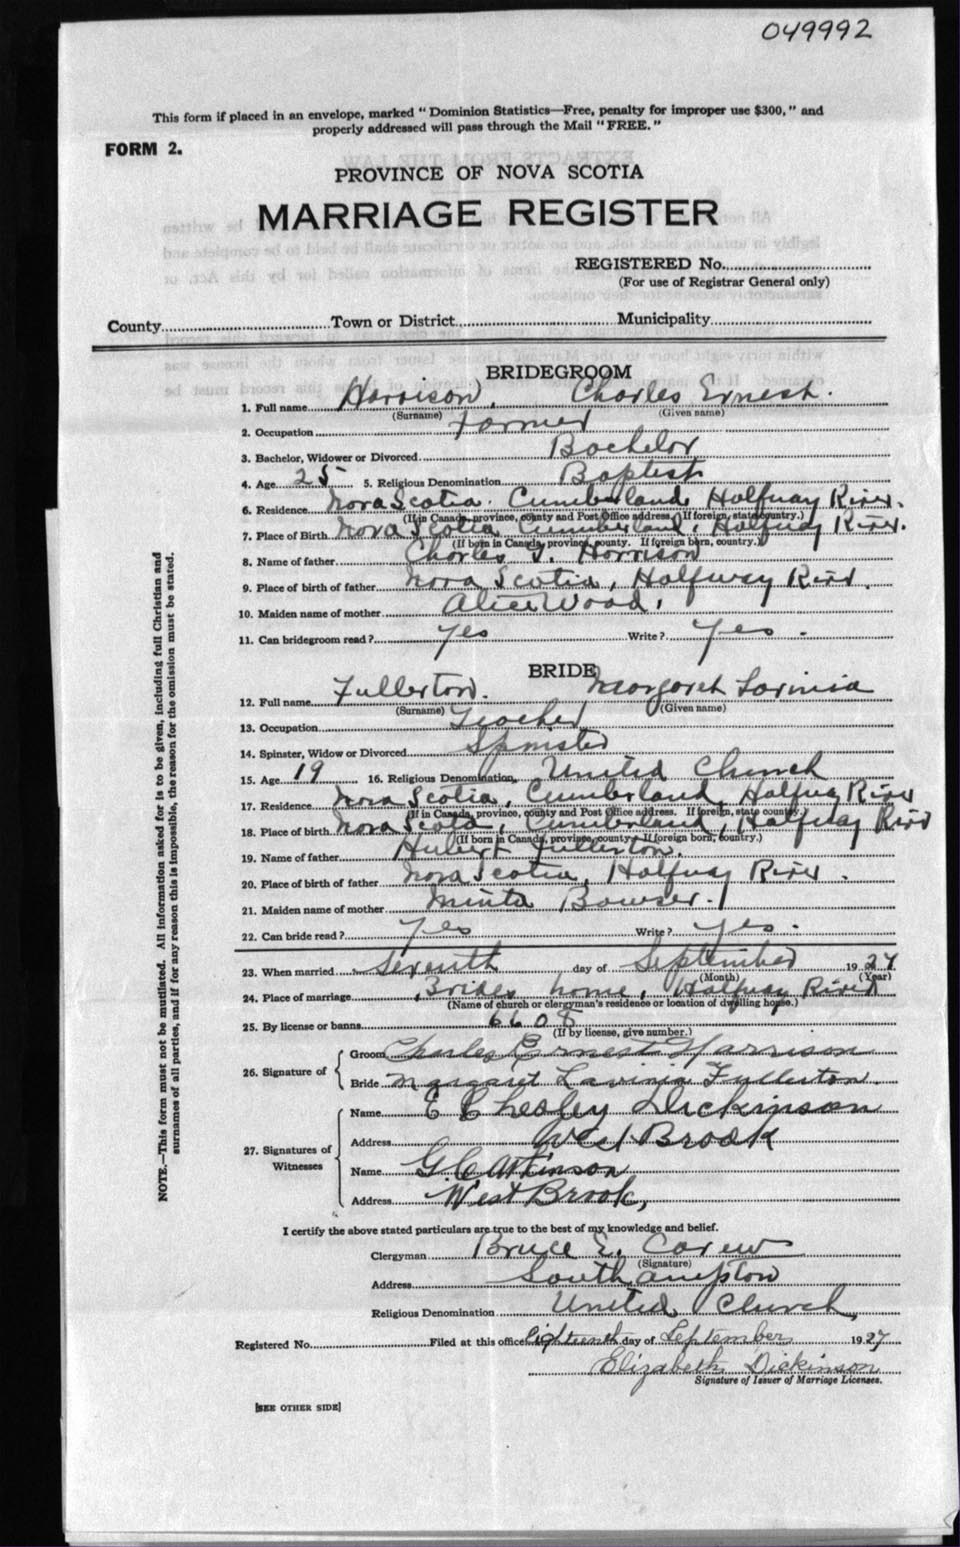 049992
This form if placed in an envelope, marked "Dominion Statistics—Free, penalty for improper use $300," and
properly addressed will pass through the Mail "FREE."
FORM 2.
PROVINCE OF NOVA SCOTIA
MARRIAGE REGISTER
REGISTERED No.
(For use of Registrar General only)
County Town or District Municipality
BRIDEGROOM
1. Full name Harrison, Charles Ernest.
(Surname) (Given name)
2. Occupation Farmer
3. Bachelor, Widower or Divorced Bachelor
4. Age 25 5. Religious Denomination Baptist
6. Residence Nova Scotia. Cumberland, Halfway River.
(If in Canada, province, county and Post Office address. If foreign, state country.)
7. Place of Birth Nova Scotia Cumberland, Halfway River.
(If born in Canada, province, county. If foreign born, country.)
8. Name of father Charles T. Harrison
9. Place of birth of father Nova Scotia, Halfway River.
10. Maiden name of mother Alice Wood.
11. Can bridegroom read? Yes Write? Yes.
BRIDE
12. Full name Fullerton. Margaret Lavinia
(Surname) (Given name)
13. Occupation Teacher
14. Spinster, Widow or Divorced Spinster
15. Age 19 16. Religious Denomination United Church
17. Residence Nova Scotia, Cumberland, Halfway River
(If in Canada, province, county and Post Office address. If foreign, state country.)
18. Place of birth Nova Scotia, Cumberland, Halfway River
(If born in Canada, province, county. If foreign born, country.)
19. Name of father Hubert Fullerton.
20. Place of birth of father Nova Scotia, Halfway River.
21. Maiden name of mother Minta Bowser.
22. Can bride read? Yes Write? Yes.
23. When married Seventh day of September 1927
(Month) (Year)
24. Place of marriage Brides home, Halfway River
(Name of church or clergyman's residence or location of dwelling house.)
25. By license or banns 6608
(If by license, give number.)
26. Signature of
Groom Charles Ernest Harrison
Bride Margaret Lavinia Fullerton.
27. Signatures of
Witnesses
Name E Chesley Dickinson
Address West Brook
Name G. C Atkinson
Address West Brook,
I certify the above stated particulars are true to the best of my knowledge and belief.
Clergyman Bruce E. Carew
(Signature)
Address Southampton
Religious Denomination United Church,
Registered No. Filed at this office Eighteenth day of September 1927
Elizabeth Dickinson
Signature of Issuer of Marriage Licenses.
[SEE OTHER SIDE]
NOTE.—This form must not be mutilated. All information asked for is to be given, including full Christian and
surnames of all parties, and if for any reason this is impossible, the reason for the omission must be stated.